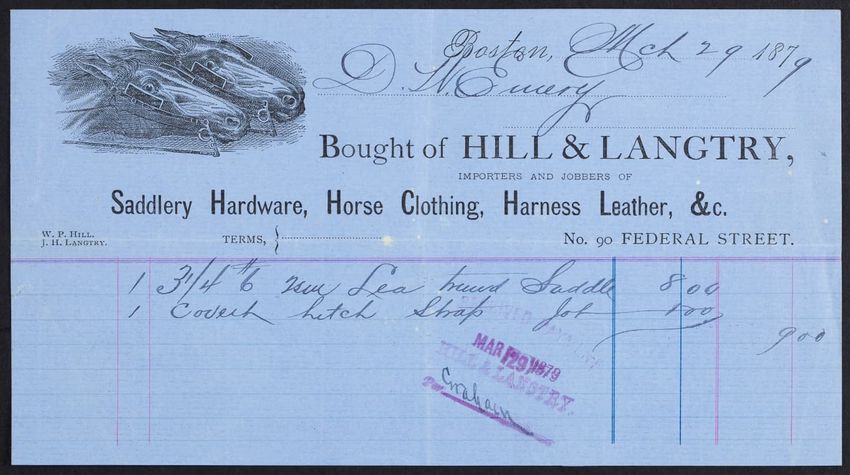 Boston, Mch 29 1879
D. N. Emery
Bought of HILL & LANGTRY,
IMPORTERS AND JOBBERS OF
Saddlery Hardware, Horse Clothing, Harness Leather, &c.
W. P. HILL.
J. H. LANGTRY.
TERMS,
No. 90 FEDERAL STREET.
1 3 1/4 # 6 Lea Saddle 8 00
1 Covert hitch Strap Job 1 00
9 00
RECEIVED PAYMENT
MAR 29 1879
HILL & LANGTRY.
Per Graham